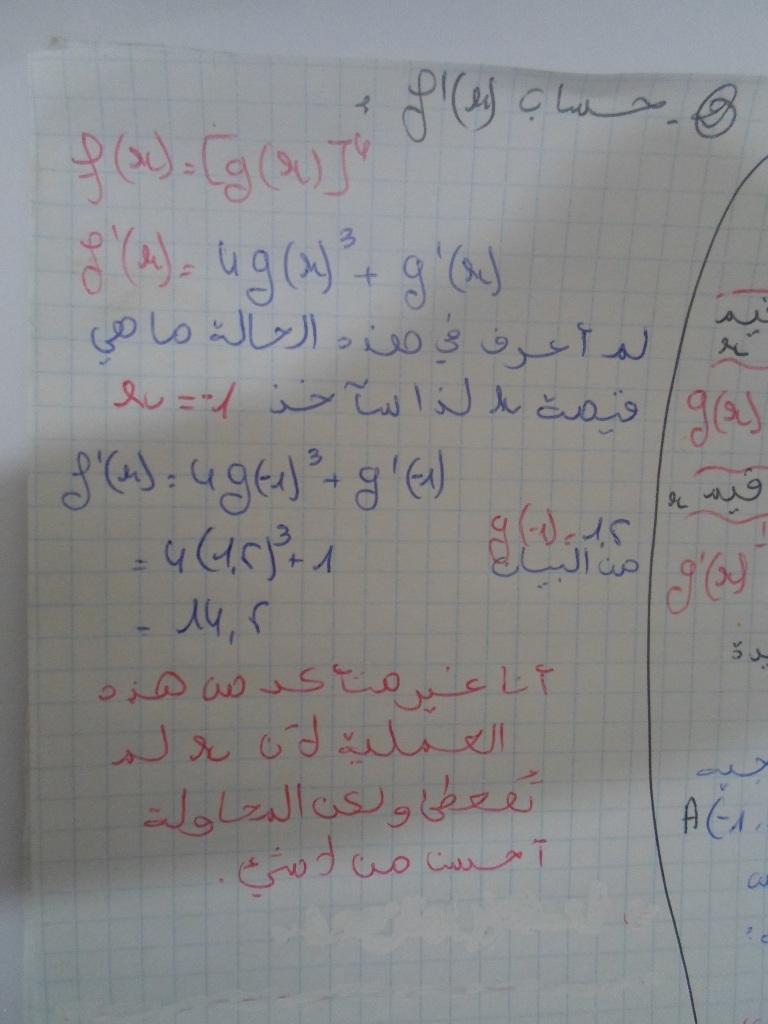 ②- حساب f'(x) :
f(x) = [g(x)]⁴
f'(x) = 4g(x)³ + g'(x)
لم أعرف في هذه الحالة ما هي
قيمة x لذا سآخذ x = -1
f'(x) = 4g(-1)³ + g'(-1)
g(-1) = 1,5
من البيان
= 4(1,5)³ + 1
= 14,5
أنا غير متأكد من هذه
العملية لأن x لم
تُعطى ولكن المحاولة
أحسن من لاشيء.
قيم
x
g(x)
قيم x
g'(x)
A(-1